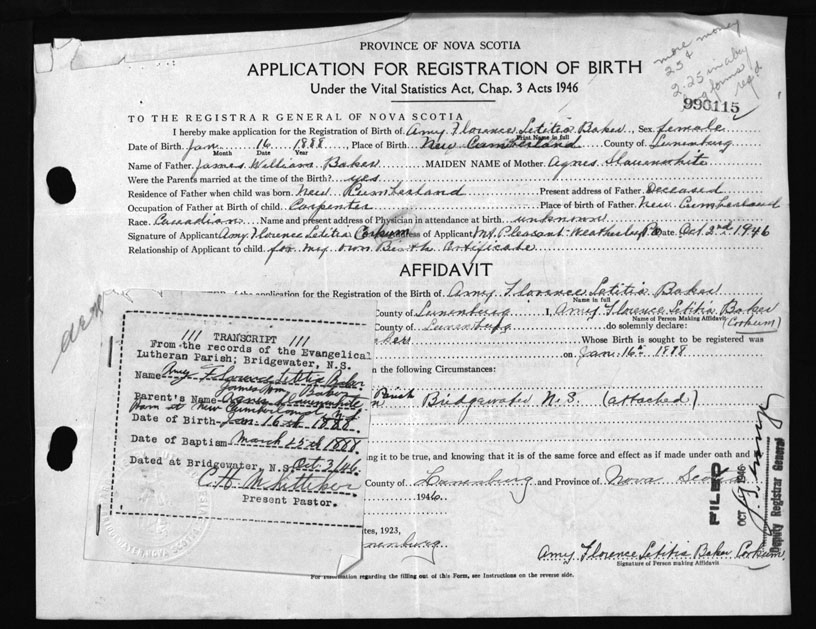 PROVINCE OF NOVA SCOTIA
APPLICATION FOR REGISTRATION OF BIRTH
Under the Vital Statistics Act, Chap. 3 Acts 1946
more money
25¢
2.25 in all
forms
req'd
990115
TO THE REGISTRAR GENERAL OF NOVA SCOTIA
I hereby make application for the Registration of Birth of Amy Florence Letitia Baker Sex female
Print Name in full
Date of Birth Jan. 16 1888, Place of Birth New Cumberland County of Lunenburg
Month Date Year
Name of Father James William Baker MAIDEN NAME of Mother Agnes Slauenwhite
Were the Parents married at the time of the Birth? yes
Residence of Father when child was born New Cumberland Present address of Father Deceased
Occupation of Father at Birth of Child Carpenter Place of birth of Father New Cumberland
Race Canadian Name and present address of Physician in attendance at birth unknown
Signature of Applicant Amy Florence Letitia Corkum Address of Applicant Mt. Pleasant Date Oct 2nd 1946
Relationship of Applicant to child for my own Birth Certificate
AFFIDAVIT
of the application for the Registration of Birth of Amy Florence Letitia Baker
Name in full
County of Lunenburg I, Amy Florence Letitia Baker
Name of Person Making Affidavit
(Corkum)
County of Lunenburg do solemnly declare:
Whose Birth is sought to be registered was
on Jan 16th 1888
the following Circumstances:
Parish Bridgewater N.S. (attached)
ing it to be true, and knowing that it is of the same force and effect as if made under oath and
County of Lunenburg and Province of Nova Scotia
1946
tes, 1923,
Lunenburg
Amy Florence Letitia Baker Corkum
Signature of Person making Affidavit
For information regarding the filling out of this Form, see Instructions on the reverse side.
/// TRANSCRIPT ///
From the records of the Evangelical
Lutheran Parish; Bridgewater, N.S.
Name Amy Florence Letitia Baker
James Wm Baker
Parent's Name Agnes Slauenwhite
Born at New Cumberland
Date of Birth Jan. 16th 1888.
Date of Baptism March 25th 1888.
Dated at Bridgewater, N.S. Oct. 3/46.
Present Pastor.
FILED
OCT 1946
Deputy Registrar General